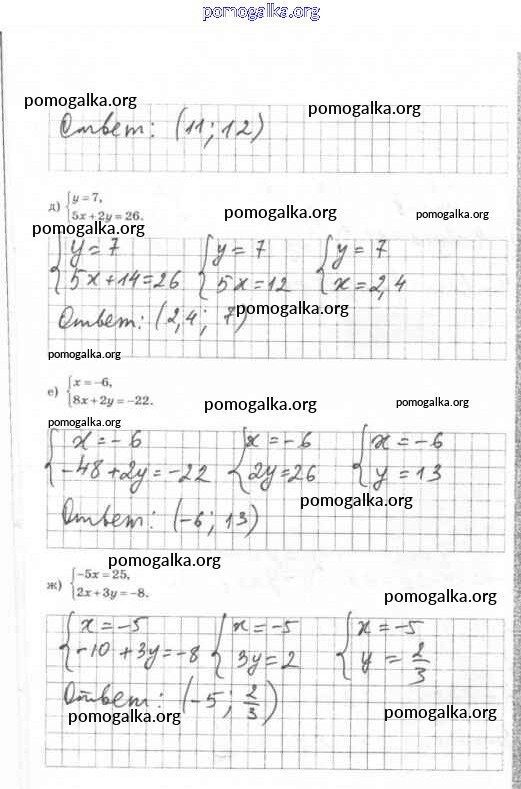 pomogalka.org
pomogalka.org
pomogalka.org
Ответ: (11; 12)
д) {y = 7,
5x + 2y = 26.
pomogalka.org
pomogalka.org
pomogalka.org
{y = 7 {y = 7 {y = 7
5x + 14 = 26 5x = 12 x = 2,4
pomogalka.org
Ответ: (2,4; 7)
pomogalka.org
е) {x = -6,
8x + 2y = -22.
pomogalka.org
pomogalka.org
pomogalka.org
{x = -6 {x = -6 {x = -6
-48 + 2y = -22 2y = 26 y = 13
pomogalka.org
Ответ: (-6; 13)
pomogalka.org
ж) {-5x = 25,
2x + 3y = -8.
pomogalka.org
{x = -5 {x = -5 {x = -5
-10 + 3y = -8 3y = 2 y = 2/3
Ответ: (-5; 2/3)
pomogalka.org
pomogalka.org